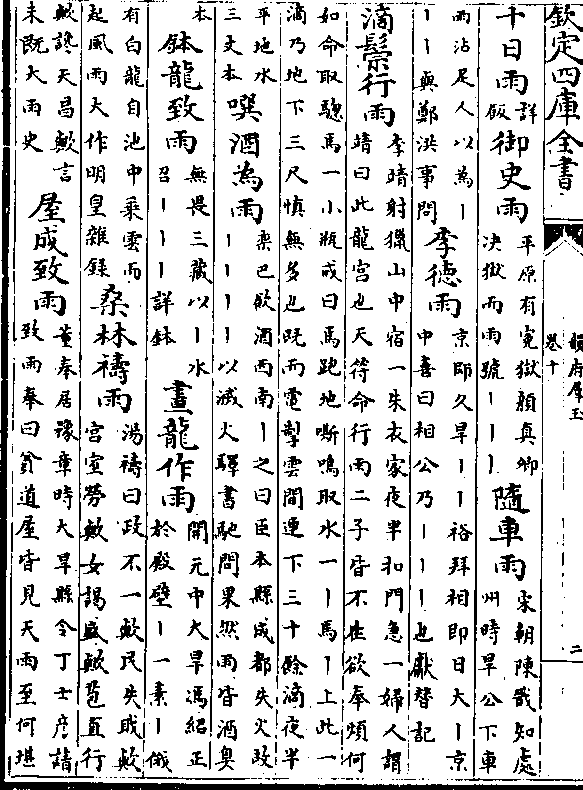 欽定四庫全書
韻府群玉
卷十
二
十日雨
詳
飯
御史雨
平原有冤獄顔真卿
決獄而雨號丨丨丨
隨車雨
宋朝陳戩知處
州時旱公下車
雨沾足人以為丨
丨丨與鄭洪事同
李德雨
京師久旱丨丨裕拜相即日大丨京
中喜曰相公乃丨丨丨也獻替記
滴鬃行雨
李靖射獵山中宿一朱衣家夜半扣門急一婦人謂
靖曰此龍宫也天符命行雨二子皆不在欲奉煩何
如命取驄馬一小瓶戒曰馬跑地嘶鳴取水一丨馬丨上此一
滴乃地下三尺慎無多也既而電掣雲間連下三十餘滴夜半
平地水
三丈本
噀酒為雨
欒巴飲酒西南丨之曰臣本縣成都失火故
丨丨丨丨以滅火驛書馳問果然雨皆酒臭
本
鉢龍致雨
無畏三藏以丨水
召丨丨丨詳鉢
畫龍作雨
開元中大旱馮紹正
於殿壁丨一素丨俄
有白龍自池中乘雲而
起風雨大作明皇雜錄
桑林禱雨
湯禱曰政不一歟民失職歟
宫室勞歟女謁盛歟苞苴行
歟讒夫昌歟言
未既大雨史
屋成致雨
董奉居豫章時大旱縣令丁士彦請
致雨奉曰貧道屋皆見天雨至何堪